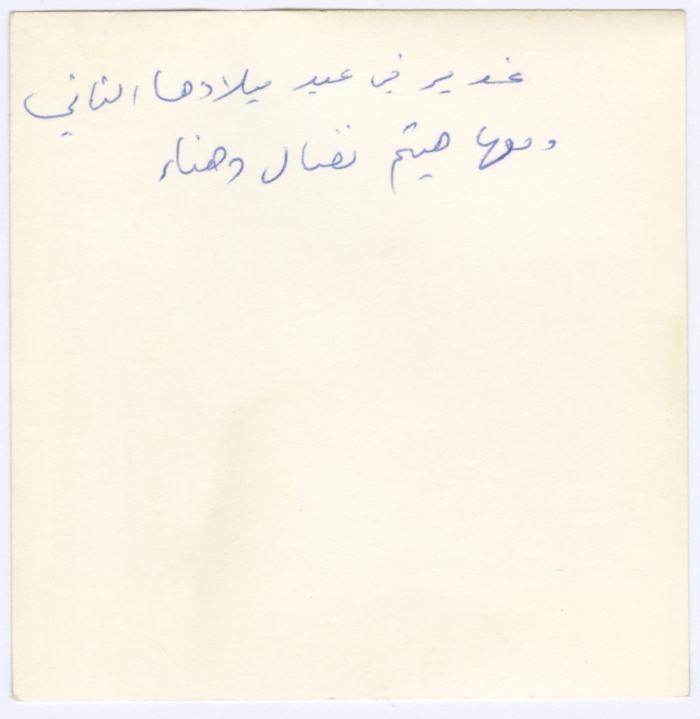 غدير في عيد ميلادها الثاني
ومعها هيثم نضال وهناء